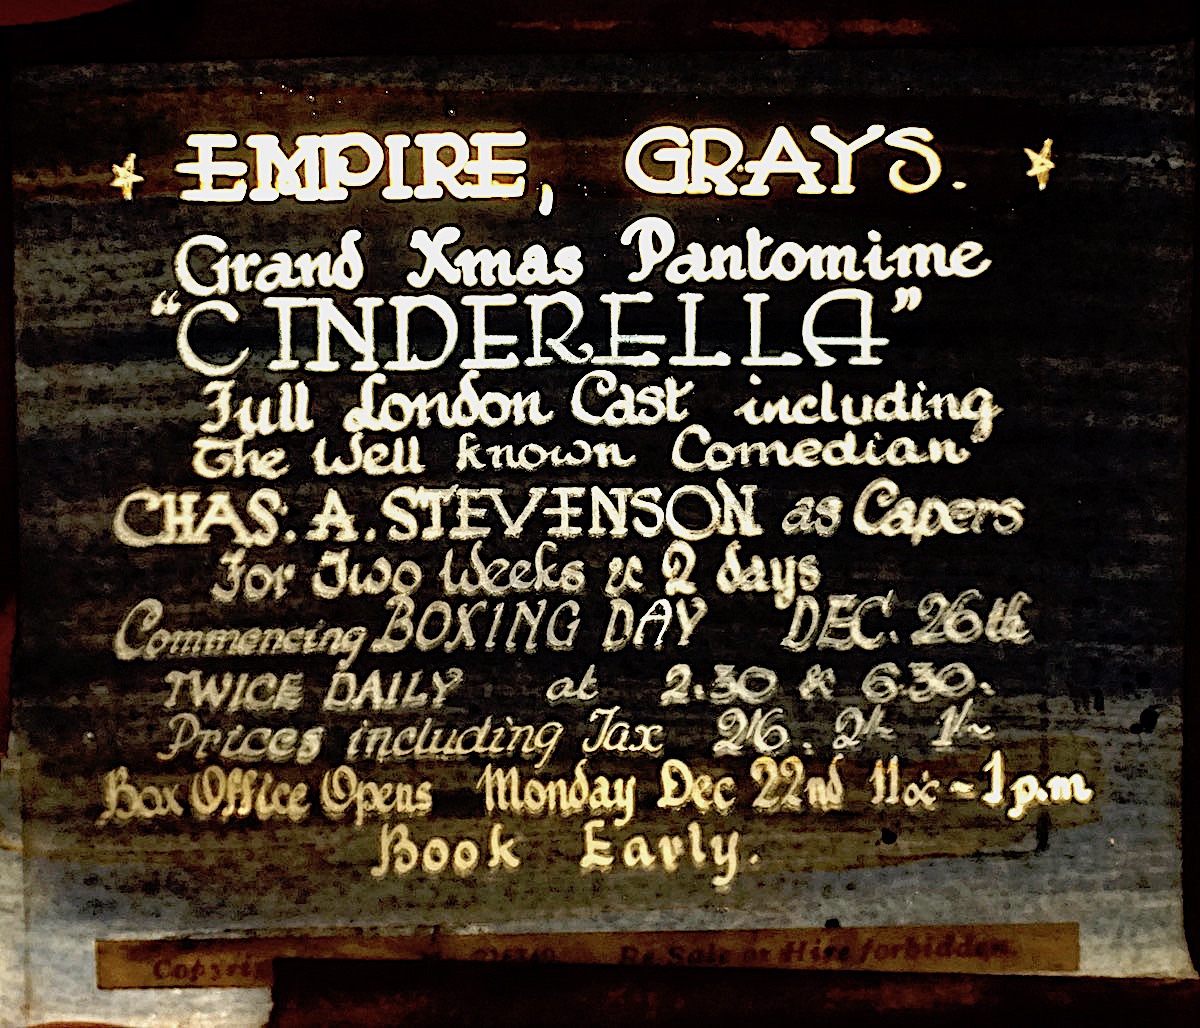 EMPIRE, GRAYS.
Grand Xmas Pantomime
"CINDERELLA"
Full London Cast including
The Well known Comedian
CHAS. A. STEVENSON as Capers
For Two Weeks & 2 days
Commencing BOXING DAY DEC. 26th
TWICE DAILY at 2.30 & 6.30.
Prices including Tax 2/6. 2/- 1/-
Box Office Opens Monday Dec 22nd 11oc - 1p.m
Book Early.
Re Sale or Hire forbidden